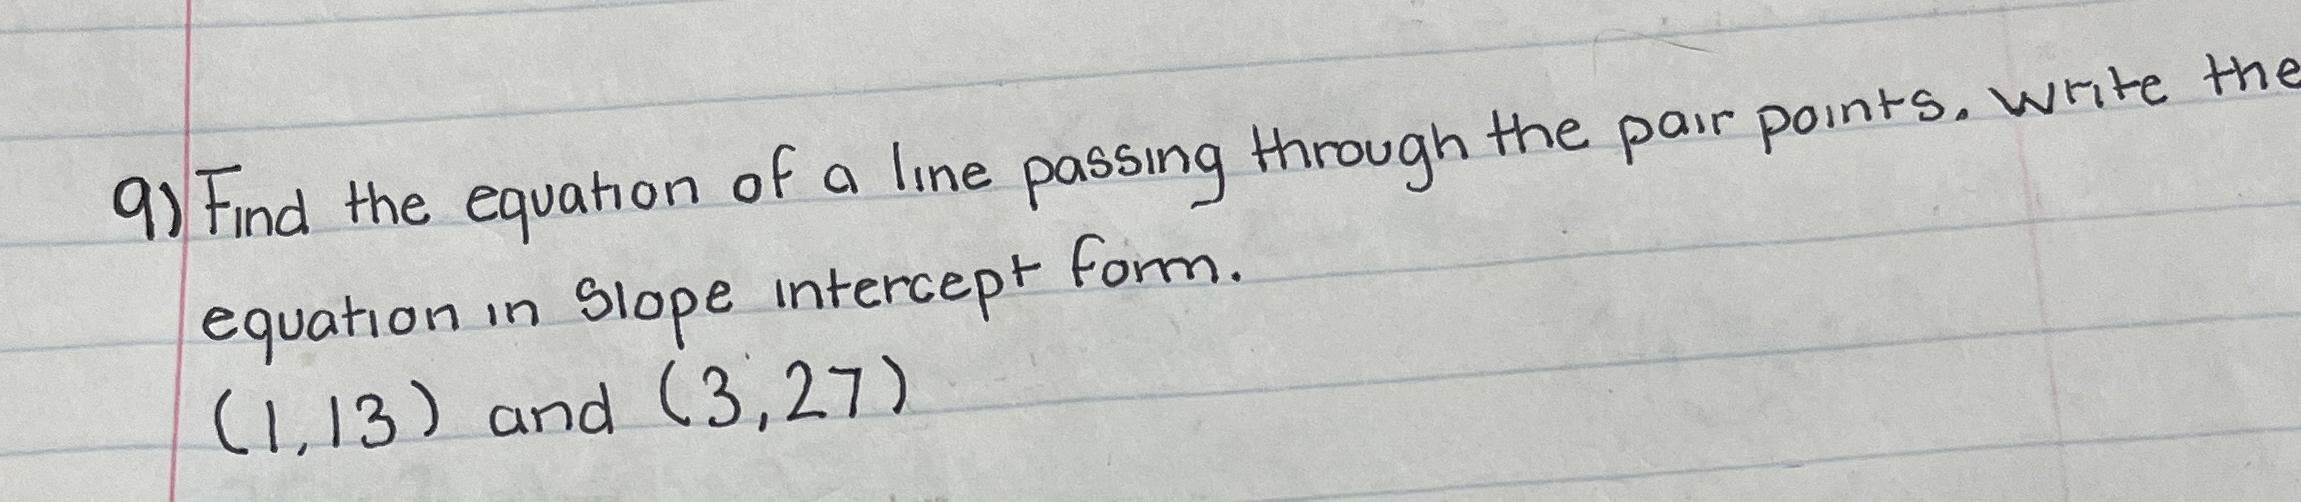 9) Find the equation of a line passing through the pair points. Write the
equation in Slope intercept form.
(1,13) and (3,27)